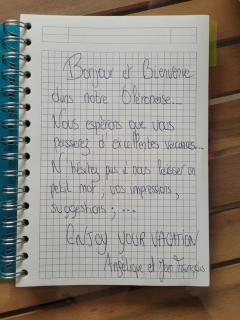 Bonjour et Bienvenue
dans notre Oléronaise...
Nous espérons que vous
passerez d'excellentes vacances...
N'hésitez pas à nous laisser un
petit mot ; vos impressions,
suggestions ; ...
ENJOY YOUR VACATION
Angélique et Jean François